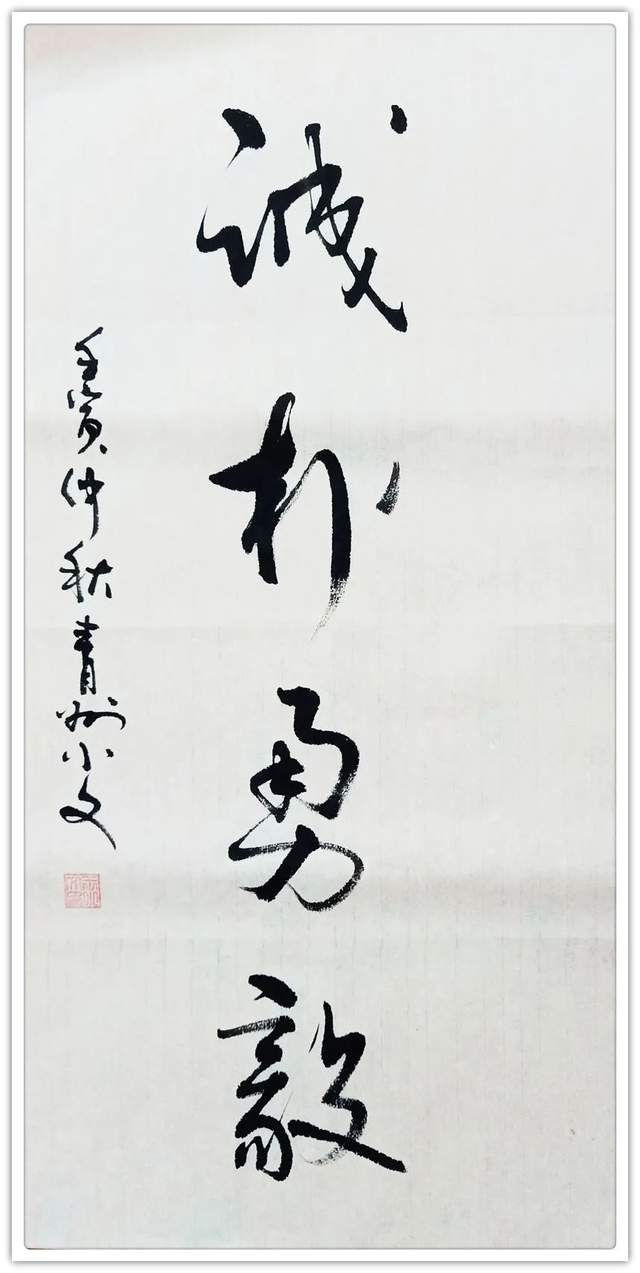 诚朴勇毅
壬寅仲秋青州小文